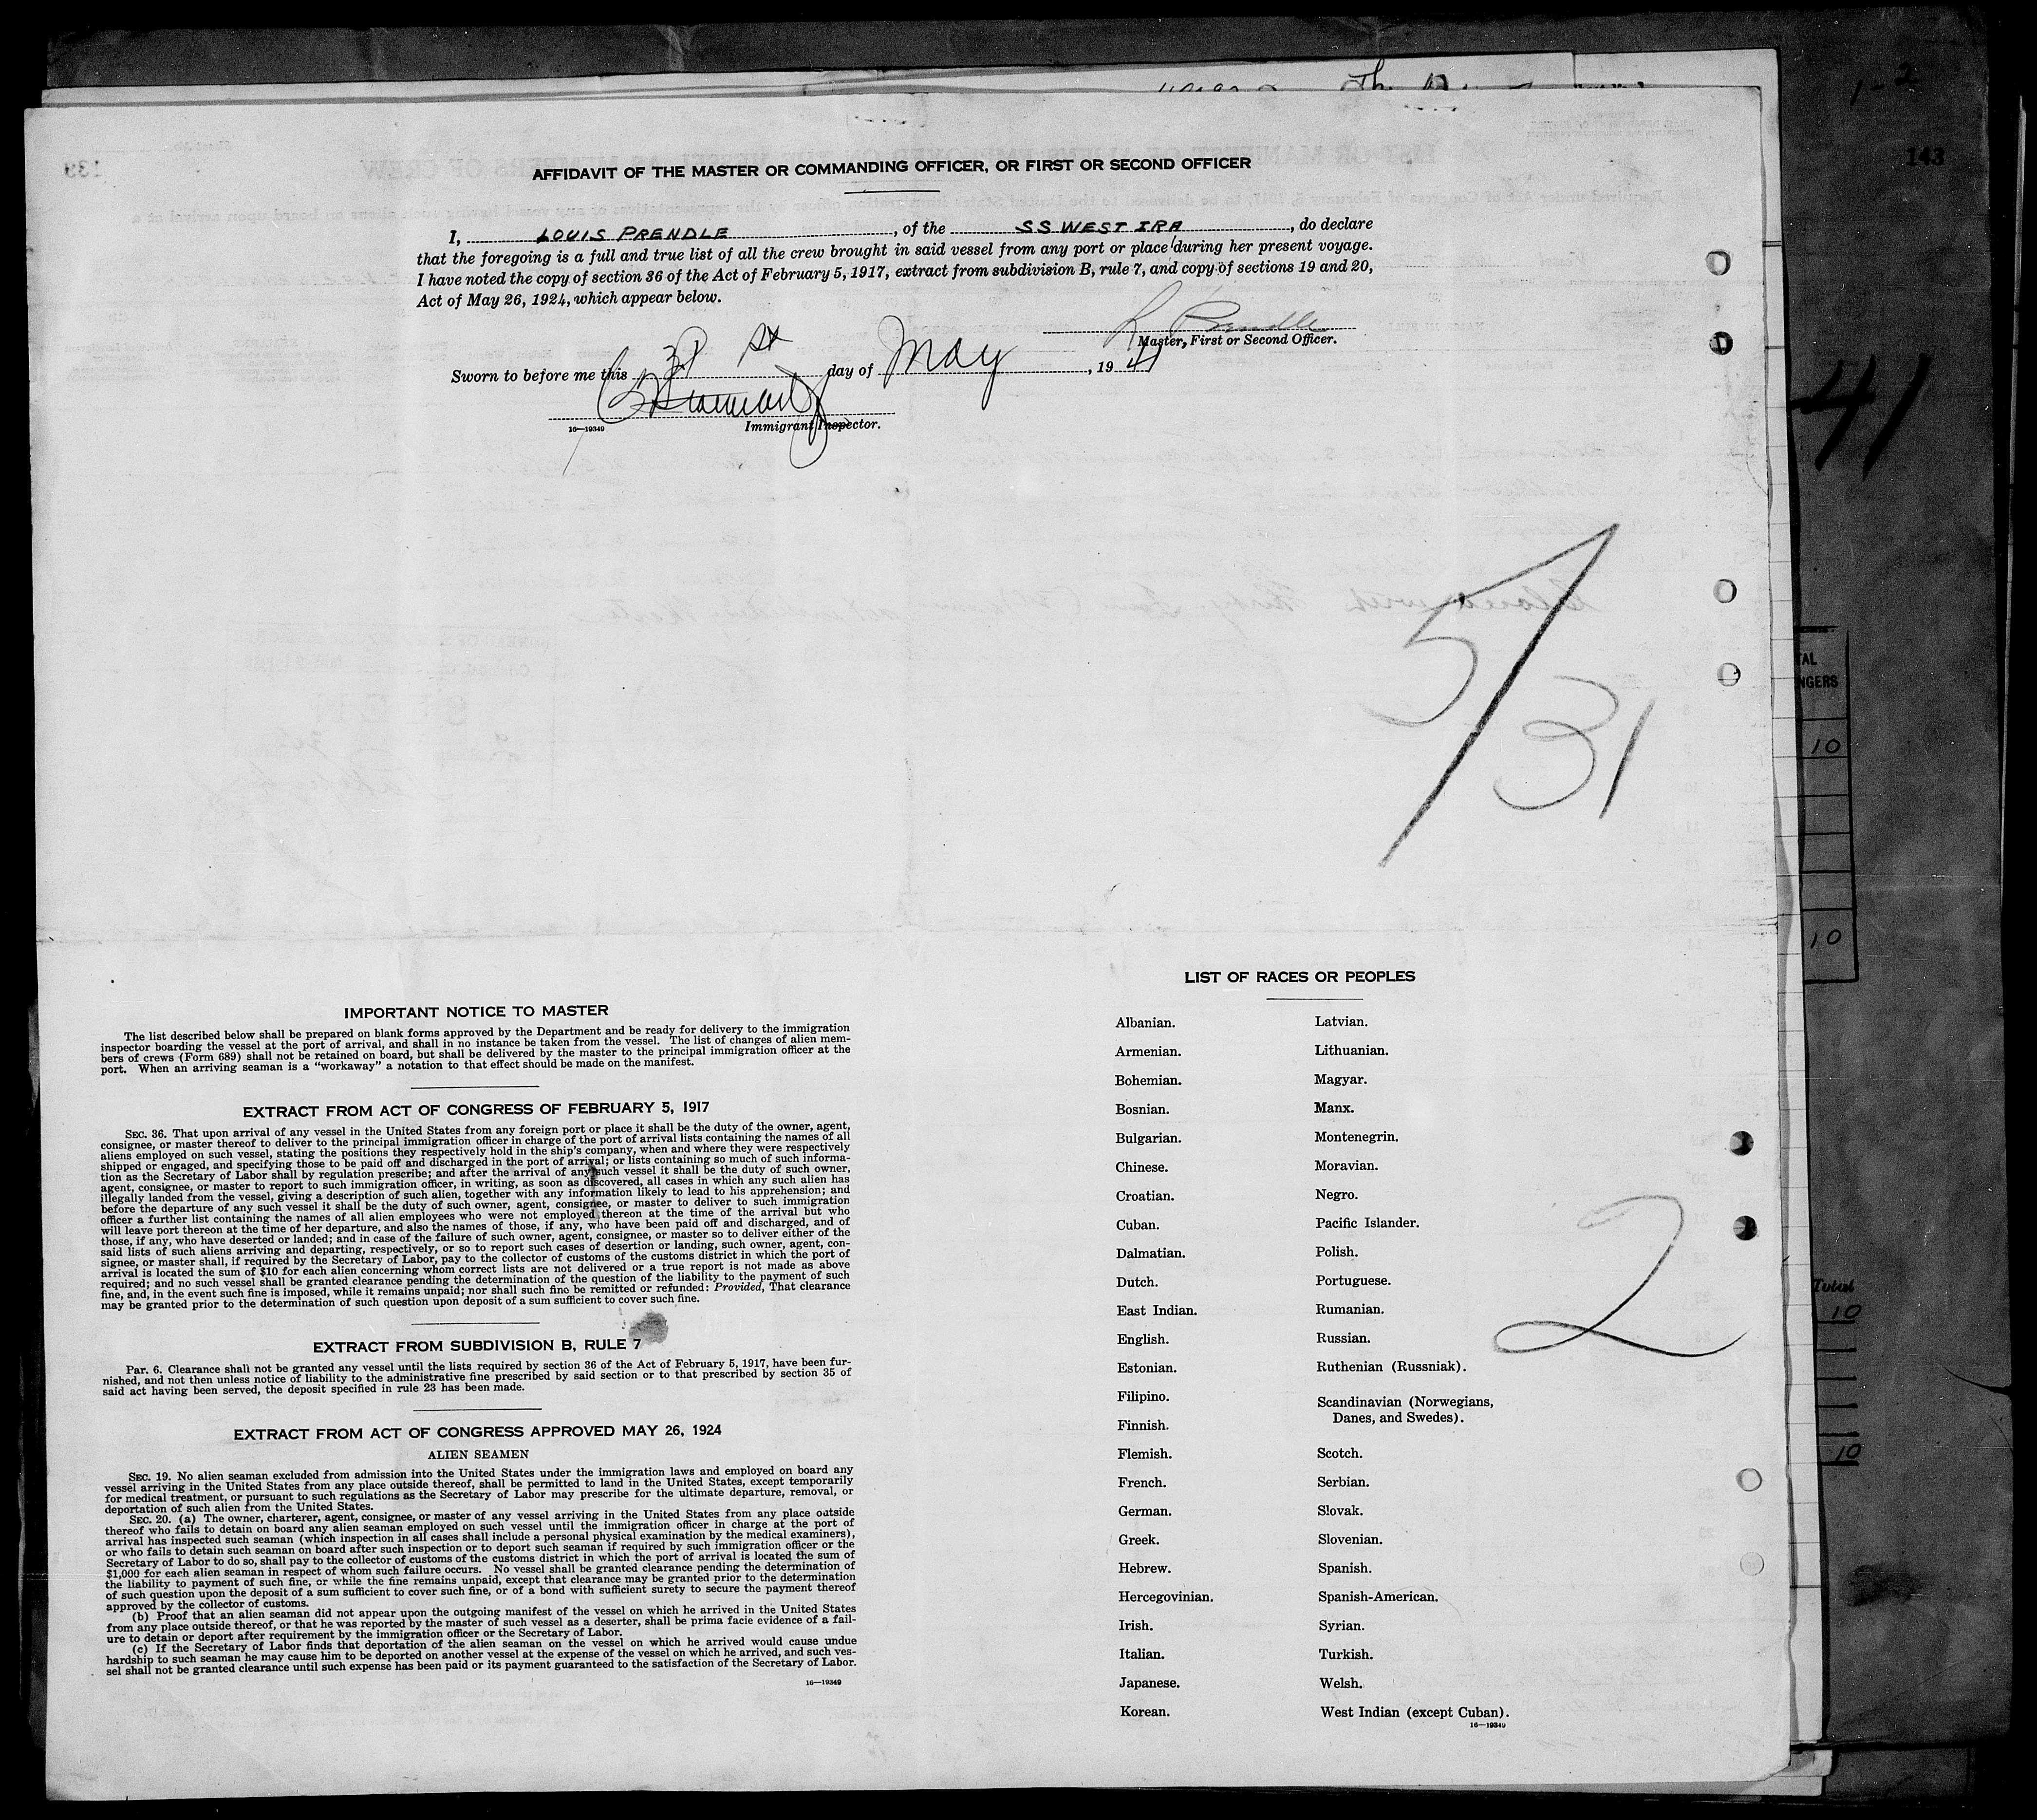 143
AFFIDAVIT OF THE MASTER OR COMMANDING OFFICER, OR FIRST OR SECOND OFFICER
I, LOUIS PRENDLE, of the SS WEST IRA, do declare
that the foregoing is a full and true list of all the crew brought in said vessel from any port or place during her present voyage.
I have noted the copy of section 36 of the Act of February 5, 1917, extract from subdivision B, rule 7, and copy of sections 19 and 20,
Act of May 26, 1924, which appear below.
L Prendle
Master, First or Second Officer.
Sworn to before me this 31 st day of May, 1941
16—19349
Immigrant Inspector.
41
5/31
TAL
NGERS
10
10
IMPORTANT NOTICE TO MASTER
The list described below shall be prepared on blank forms approved by the Department and be ready for delivery to the immigration
inspector boarding the vessel at the port of arrival, and shall in no instance be taken from the vessel. The list of changes of alien mem-
bers of crews (Form 689) shall not be retained on board, but shall be delivered by the master to the principal immigration officer at the
port. When an arriving seaman is a “workaway” a notation to that effect should be made on the manifest.
EXTRACT FROM ACT OF CONGRESS OF FEBRUARY 5, 1917
SEC. 36. That upon arrival of any vessel in the United States from any foreign port or place it shall be the duty of the owner, agent,
consignee, or master thereof to deliver to the principal immigration officer in charge of the port of arrival lists containing the names of all
aliens employed on such vessel, stating the positions they respectively hold in the ship's company, when and where they were respectively
shipped or engaged, and specifying those to be paid off and discharged in the port of arrival; or lists containing so much of such informa-
tion as the Secretary of Labor shall by regulation prescribe; and after the arrival of any such vessel it shall be the duty of such owner,
agent, consignee, or master to report to such immigration officer, in writing, as soon as discovered, all cases in which any such alien has
illegally landed from the vessel, giving a description of such alien, together with any information likely to lead to his apprehension; and
before the departure of any such vessel it shall be the duty of such owner, agent, consignee, or master to deliver to such immigration
officer a further list containing the names of all alien employees who were not employed thereon at the time of the arrival but who
will leave port thereon at the time of her departure, and also the names of those, if any, who have been paid off and discharged, and of
those, if any, who have deserted or landed; and in case of the failure of such owner, agent, consignee, or master so to deliver either of the
said lists of such aliens arriving and departing, respectively, or so to report such cases of desertion or landing, such owner, agent, con-
signee, or master shall, if required by the Secretary of Labor, pay to the collector of customs of the customs district in which the port of
arrival is located the sum of $10 for each alien concerning whom correct lists are not delivered or a true report is not made as above
required; and no such vessel shall be granted clearance pending the determination of the question of the liability to the payment of such
fine, and, in the event such fine is imposed, while it remains unpaid; nor shall such fine be remitted or refunded: Provided, That clearance
may be granted prior to the determination of such question upon deposit of a sum sufficient to cover such fine.
EXTRACT FROM SUBDIVISION B, RULE 7
Par. 6. Clearance shall not be granted any vessel until the lists required by section 36 of the Act of February 5, 1917, have been fur-
nished, and not then unless notice of liability to the administrative fine prescribed by said section or to that prescribed by section 35 of
said act having been served, the deposit specified in rule 23 has been made.
EXTRACT FROM ACT OF CONGRESS APPROVED MAY 26, 1924
ALIEN SEAMEN
SEC. 19. No alien seaman excluded from admission into the United States under the immigration laws and employed on board any
vessel arriving in the United States from any place outside thereof, shall be permitted to land in the United States, except temporarily
for medical treatment, or pursuant to such regulations as the Secretary of Labor may prescribe for the ultimate departure, removal, or
deportation of such alien from the United States.
SEC. 20. (a) The owner, charterer, agent, consignee, or master of any vessel arriving in the United States from any place outside
thereof who fails to detain on board any alien seaman employed on such vessel until the immigration officer in charge at the port of
arrival has inspected such seaman (which inspection in all cases shall include a personal physical examination by the medical examiners),
or who fails to detain such seaman on board after such inspection or to deport such seaman if required by such immigration officer or the
Secretary of Labor to do so, shall pay to the collector of customs of the customs district in which the port of arrival is located the sum of
$1,000 for each alien seaman in respect of whom such failure occurs. No vessel shall be granted clearance pending the determination of
the liability to payment of such fine, or while the fine remains unpaid, except that clearance may be granted prior to the determination
of such question upon the deposit of a sum sufficient to cover such fine, or of a bond with sufficient surety to secure the payment thereof
approved by the collector of customs.
(b) Proof that an alien seaman did not appear upon the outgoing manifest of the vessel on which he arrived in the United States
from any place outside thereof, or that he was reported by the master of such vessel as a deserter, shall be prima facie evidence of a fail-
ure to detain or deport after requirement by the immigration officer or the Secretary of Labor.
(c) If the Secretary of Labor finds that deportation of the alien seaman on the vessel on which he arrived would cause undue
hardship to such seaman he may cause him to be deported on another vessel at the expense of the vessel on which he arrived, and such ves-
sel shall not be granted clearance until such expense has been paid or its payment guaranteed to the satisfaction of the Secretary of Labor.
16—19349
LIST OF RACES OR PEOPLES
Albanian.
Armenian.
Bohemian.
Bosnian.
Bulgarian.
Chinese.
Croatian.
Cuban.
Dalmatian.
Dutch.
East Indian.
English.
Estonian.
Filipino.
Finnish.
Flemish.
French.
German.
Greek.
Hebrew.
Hercegovinian.
Irish.
Italian.
Japanese.
Korean.
Latvian.
Lithuanian.
Magyar.
Manx.
Montenegrin.
Moravian.
Negro.
Pacific Islander.
Polish.
Portuguese.
Rumanian.
Russian.
Ruthenian (Russniak).
Scandinavian (Norwegians,
Danes, and Swedes).
Scotch.
Serbian.
Slovak.
Slovenian.
Spanish.
Spanish-American.
Syrian.
Turkish.
Welsh.
West Indian (except Cuban).
16—19349
2
Total
10
10